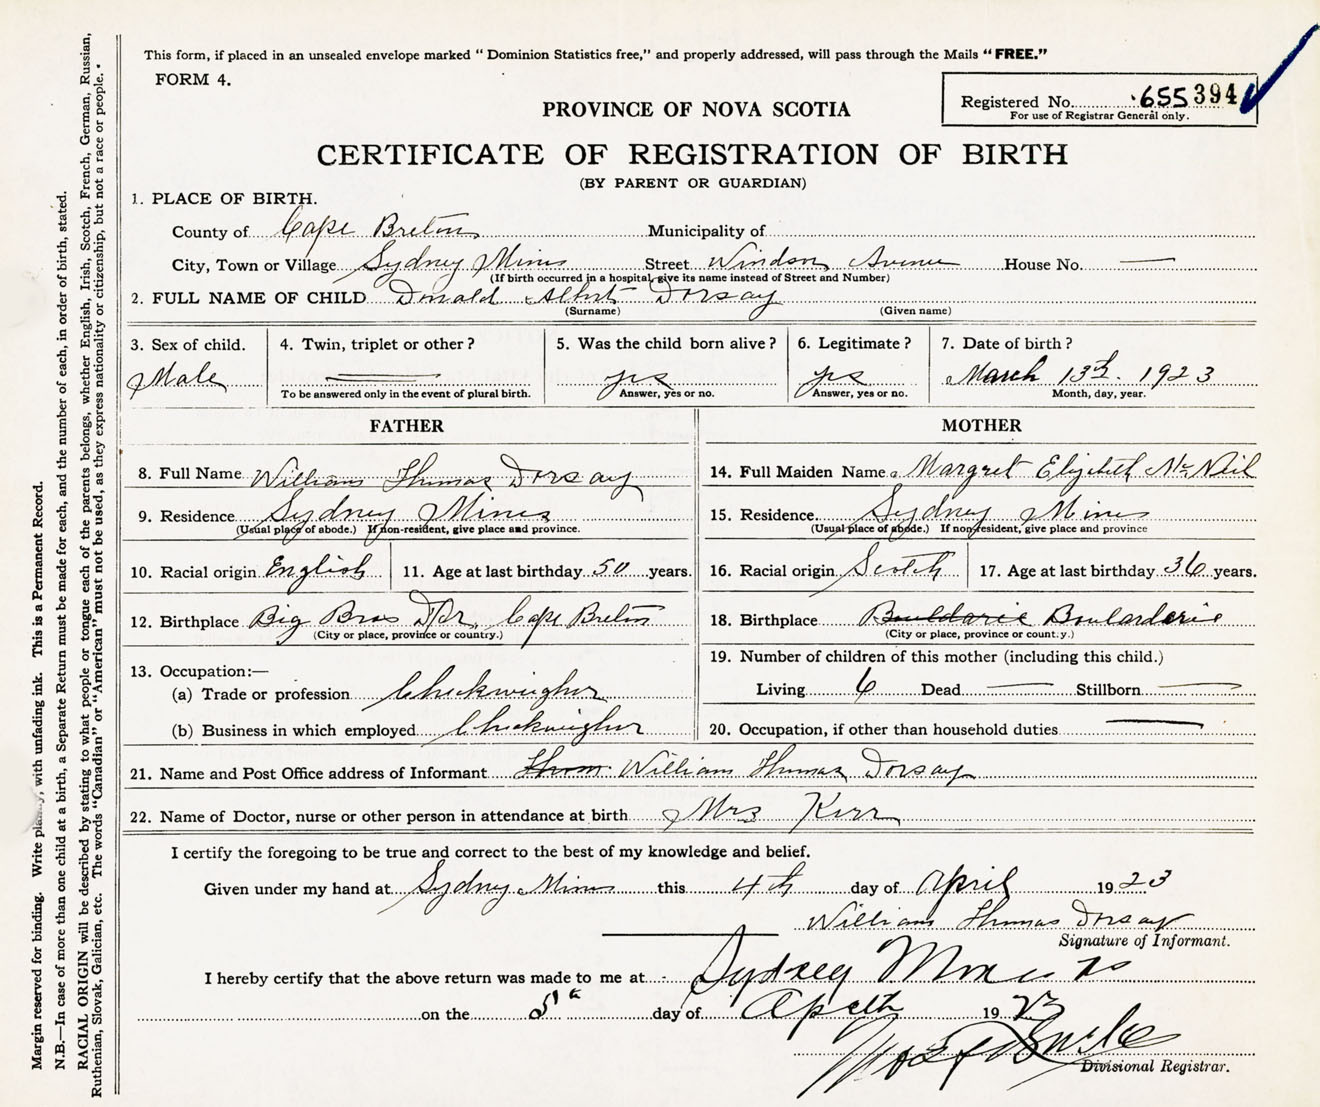 This form, if placed in an unsealed envelope marked “ Dominion Statistics free,” and properly addressed, will pass through the Mails “ FREE.”
FORM 4.
Registered No. 655394
For use of Registrar General only.
PROVINCE OF NOVA SCOTIA
CERTIFICATE OF REGISTRATION OF BIRTH
(BY PARENT OR GUARDIAN)
1. PLACE OF BIRTH.
County of Cape Breton Municipality of
City, Town or Village Sydney Mines Street Windsor Avenue House No. —
(If birth occurred in a hospital, give its name instead of Street and Number)
2. FULL NAME OF CHILD Donald Albert Dorsay
(Surname) (Given name)
3. Sex of child. 4. Twin, triplet or other ? 5. Was the child born alive ? 6. Legitimate ? 7. Date of birth ?
Male — yes yes March 13th. 1923
To be answered only in the event of plural birth. Answer, yes or no. Answer, yes or no. Month, day, year.
FATHER
8. Full Name William Thomas Dorsay
9. Residence Sydney Mines
(Usual place of abode.) If non-resident, give place and province.
10. Racial origin English 11. Age at last birthday 50 years.
12. Birthplace Big Bras D'Or, Cape Breton
(City or place, province or country.)
13. Occupation:—
(a) Trade or profession Checkweigher
(b) Business in which employed Checkweigher
MOTHER
14. Full Maiden Name Margret Elizibeth McNeil
15. Residence Sydney Mines
(Usual place of abode.) If non-resident, give place and province
16. Racial origin Scotch 17. Age at last birthday 36 years.
18. Birthplace Bouldarie Boularderie
(City or place, province or count.y.)
19. Number of children of this mother (including this child.)
Living 6 Dead — Stillborn —
20. Occupation, if other than household duties —
21. Name and Post Office address of Informant Thom. William Thomas Dorsay
22. Name of Doctor, nurse or other person in attendance at birth Mrs Kerr
I certify the foregoing to be true and correct to the best of my knowledge and belief.
Given under my hand at Sydney Mines this 4th day of April 1923
William Thomas Dorsay
Signature of Informant.
I hereby certify that the above return was made to me at Sydney Mines NS
on the 5th day of April 1923
Divisional Registrar.
Margin reserved for binding. Write plainly, with unfading ink. This is a Permanent Record.
N.B.—In case of more than one child at a birth, a Separate Return must be made for each, and the number of each, in order of birth, stated.
RACIAL ORIGIN will be described by stating to what people or tongue each of the parents belongs, whether English, Irish, Scotch, French, German, Russian,
Ruthenian, Slovak, Galician, etc. The words “Canadian” or “American” must not be used, as they express nationality or citizenship, but not a race or people.